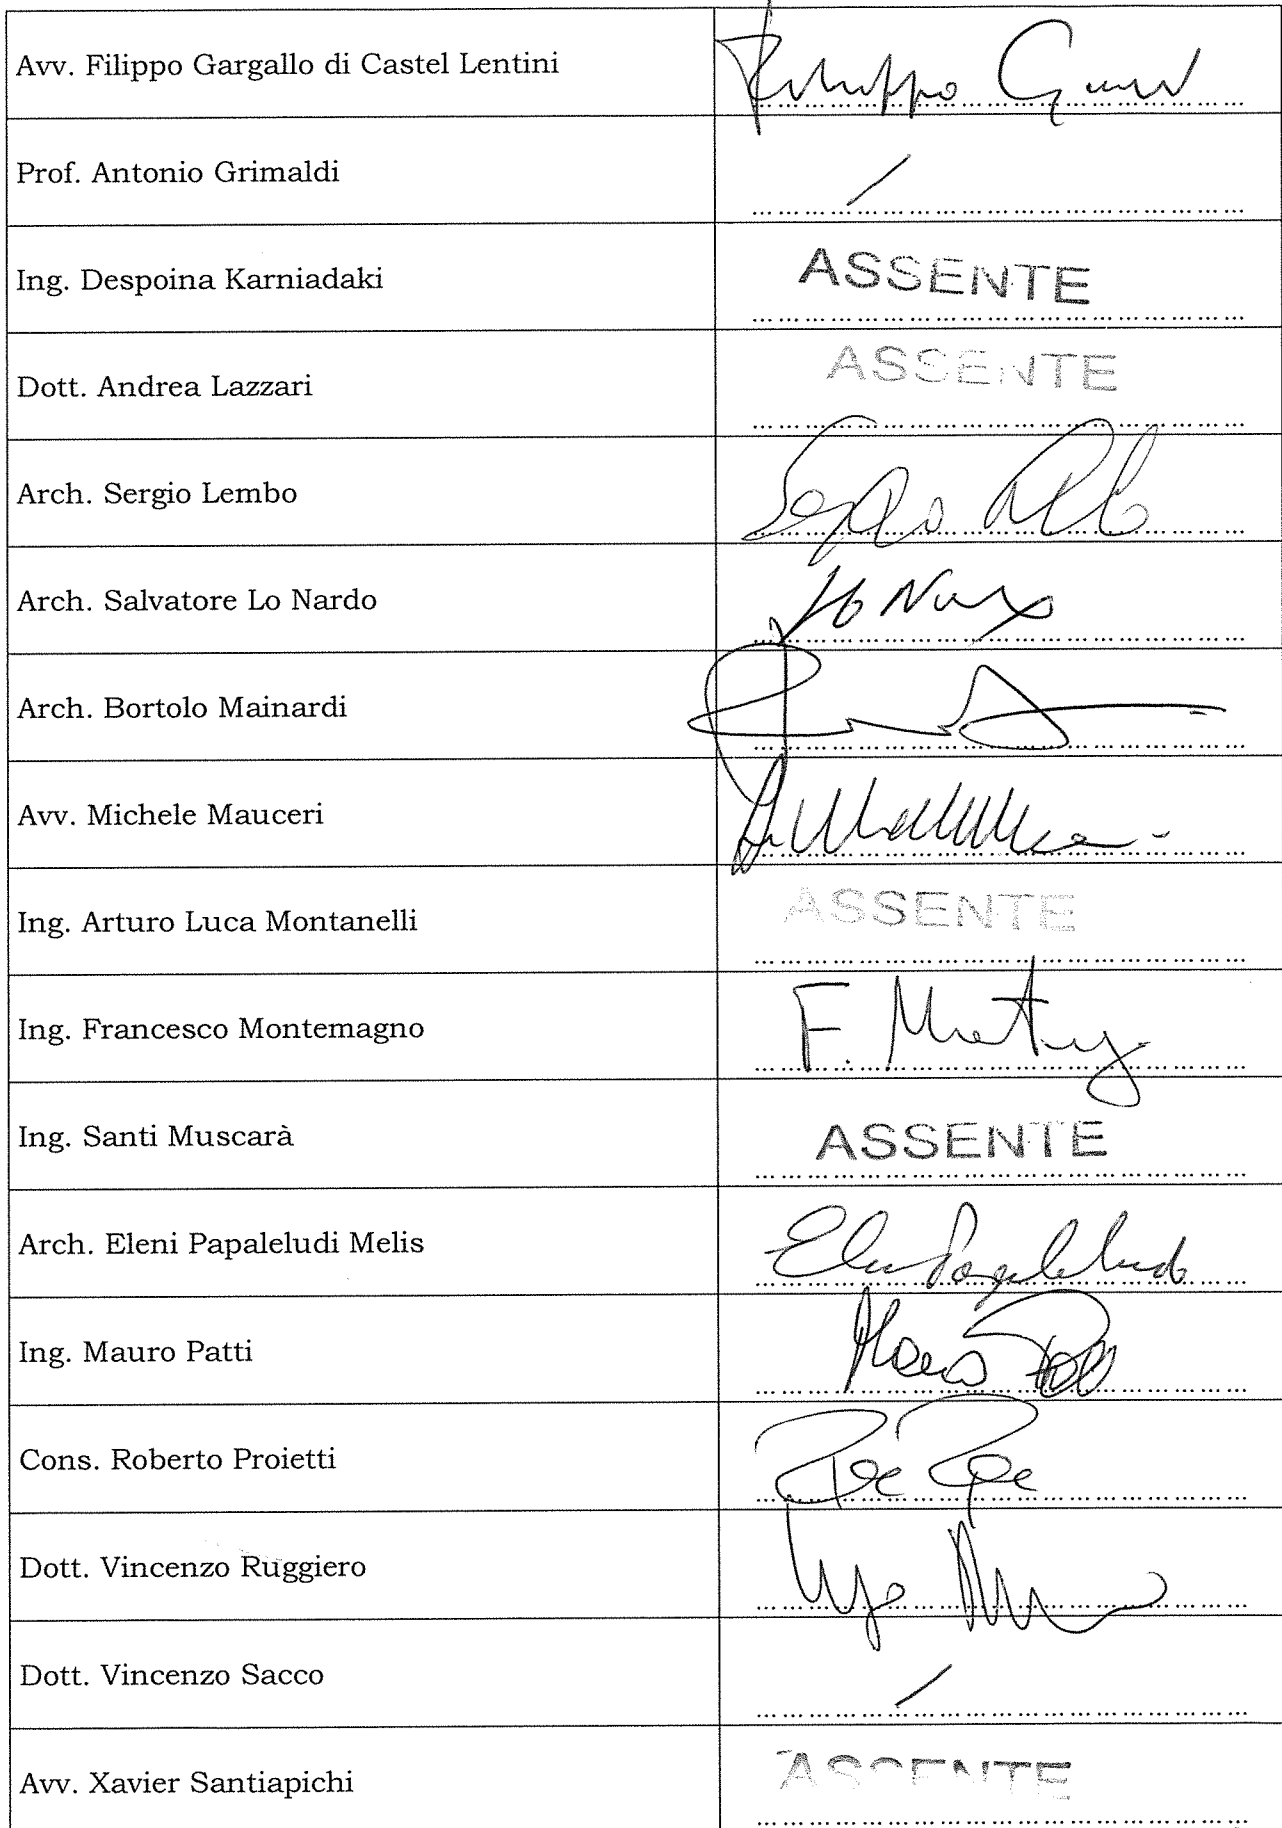 Avv. Filippo Gargallo di Castel Lentini Filippo
Prof. Antonio Grimaldi /
Ing. Despoina Karniadaki ASSENTE
Dott. Andrea Lazzari ASSENTE
Arch. Sergio Lembo Sergio
Arch. Salvatore Lo Nardo
Arch. Bortolo Mainardi
Avv. Michele Mauceri
Ing. Arturo Luca Montanelli ASSENTE
Ing. Francesco Montemagno F.
Ing. Santi Muscarà ASSENTE
Arch. Eleni Papaleludi Melis
Ing. Mauro Patti
Cons. Roberto Proietti
Dott. Vincenzo Ruggiero
Dott. Vincenzo Sacco /
Avv. Xavier Santiapichi ASSENTE